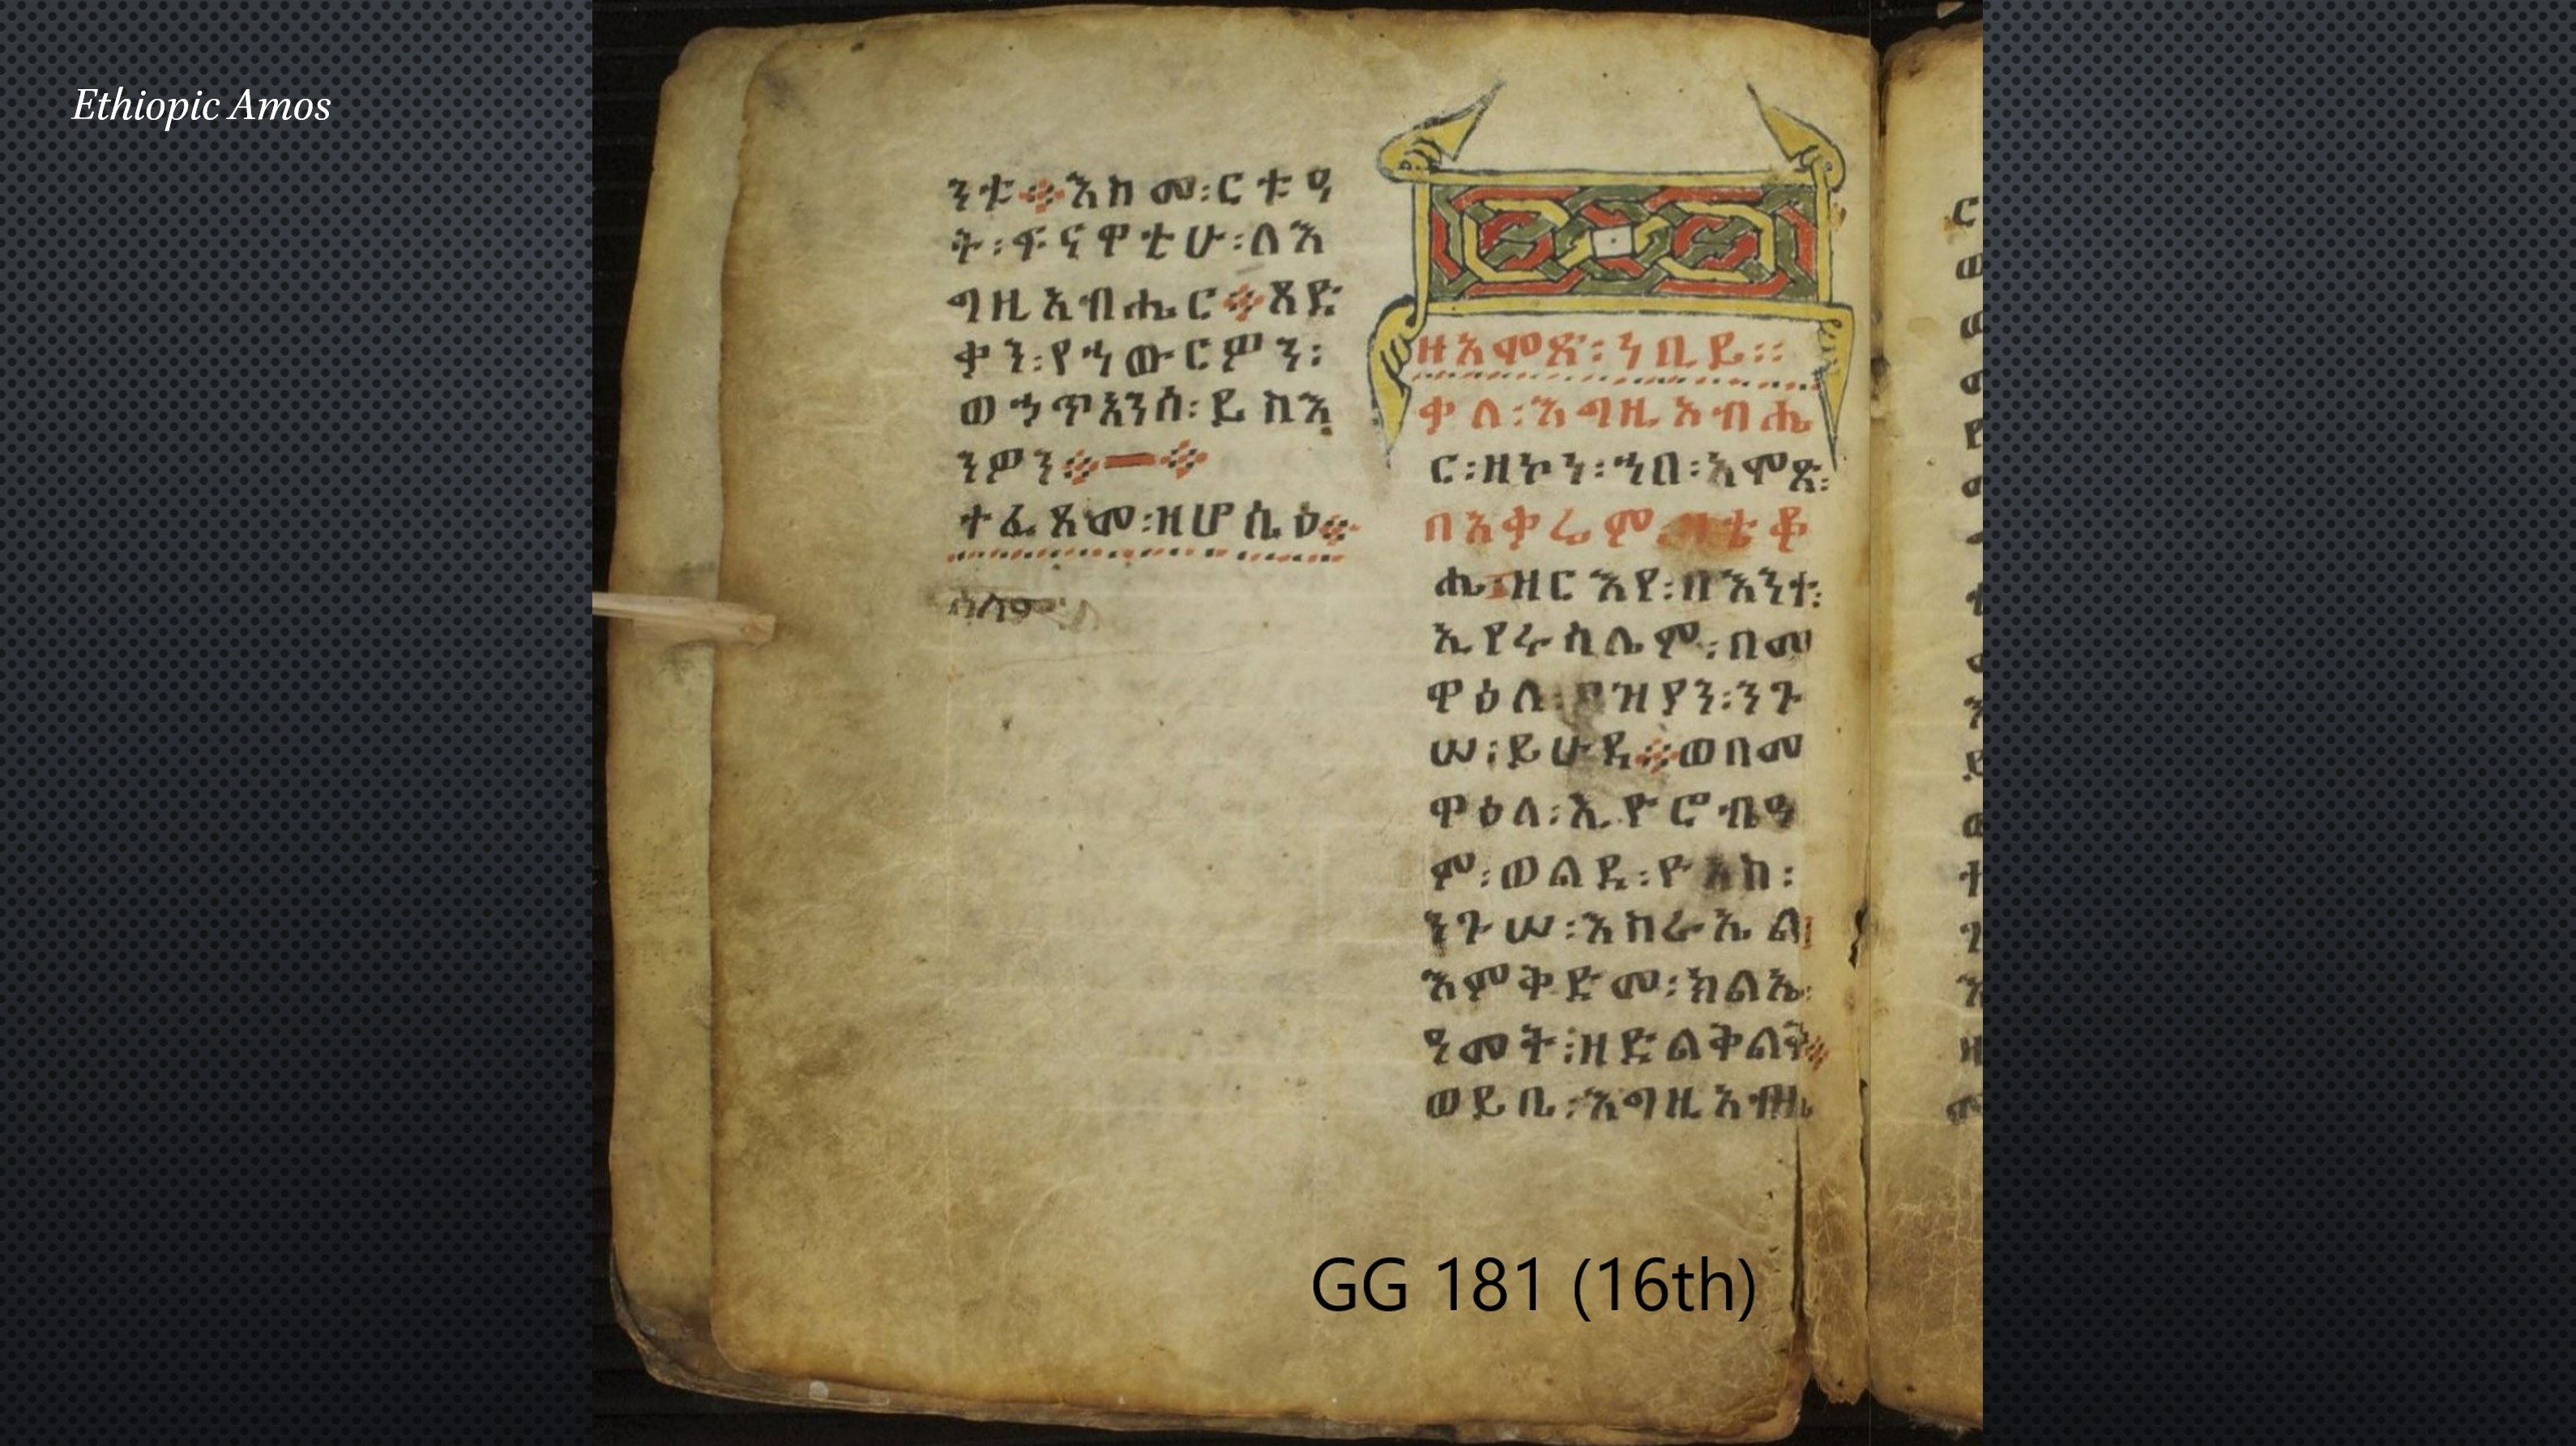 Ethiopic Amos
ንቱ፨እስመ፡ርቱዓ
ት፡ፍናዋቲሁ፡ለእ
ግዚአብሔር፨ጻድ
ቃን፡የኀውርዎን፡
ወኃጥኣንሰ፡ይስእ
ንዎን፨—፨
ተፈጸመ፡ዘሆሴዕ፨
ሰላም
ዘአሞጽ፡ነቢይ፡፡
ቃለ፡እግዚአብሔ
ር፡ዘኮነ፡ኀበ፡አሞጽ፡
በአቃሬም፡ዘቴቆ
ሔ፡ዘርእየ፡በእንተ፡
ኢየሩሳሌም፡በመ
ዋዕለ፡ዖዝያን፡ንጉ
ሠ፡ይሁዳ፨ወበመ
ዋዕለ፡ኢዮሮብዓ
ም፡ወልደ፡ዮአስ፡
ንጉሠ፡እስራኤል፡
እምቅድመ፡ክልኤ፡
ዓመት፡ዘድልቅልቅ፨
ወይቤ፡እግዚአብሔ
GG 181 (16th)